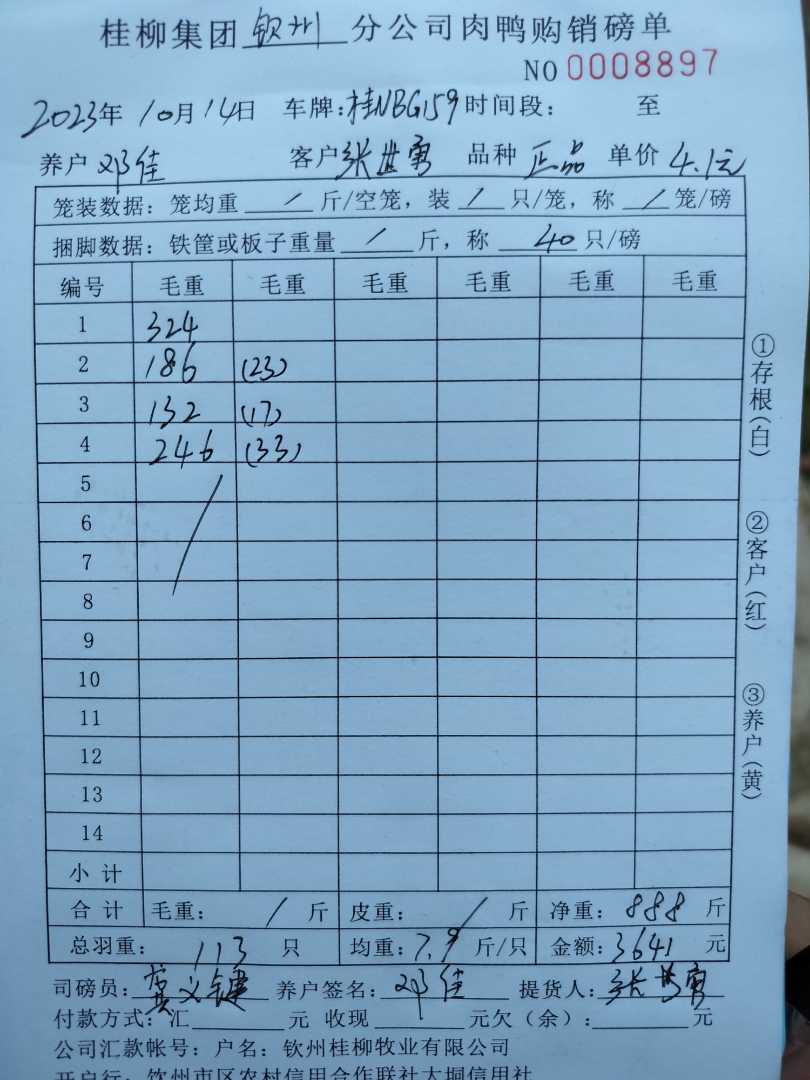 桂柳集团 钦州 分公司肉鸭购销磅单
NO 0008897
2023年 10月 14日 车牌:桂NBG159 时间段: 至
养户 邓佳 客户 张世勇 品种 正品 单价 4.1元
笼装数据: 笼均重 / 斤/空笼, 装 / 只/笼, 称 / 笼/磅
捆脚数据: 铁筐或板子重量 / 斤, 称 40 只/磅
编号 毛重 毛重 毛重 毛重 毛重 毛重
1 324
2 186 (23)
3 132 (17)
4 246 (33)
5
6
7
8
9
10
11
12
13
14
小计
合计 毛重: / 斤 皮重: / 斤 净重: 888 斤
总羽重: 113 只 均重: 7.9 斤/只 金额: 3641 元
司磅员: 龚义键 养户签名: 邓佳 提货人: 张世勇
付款方式: 汇 元 收现 元欠(余): 元
公司汇款帐号: 户名: 钦州桂柳牧业有限公司
开户行: 钦州市区农村信用合作联社大垌信用社
①存根(白)
②客户(红)
③养户(黄)